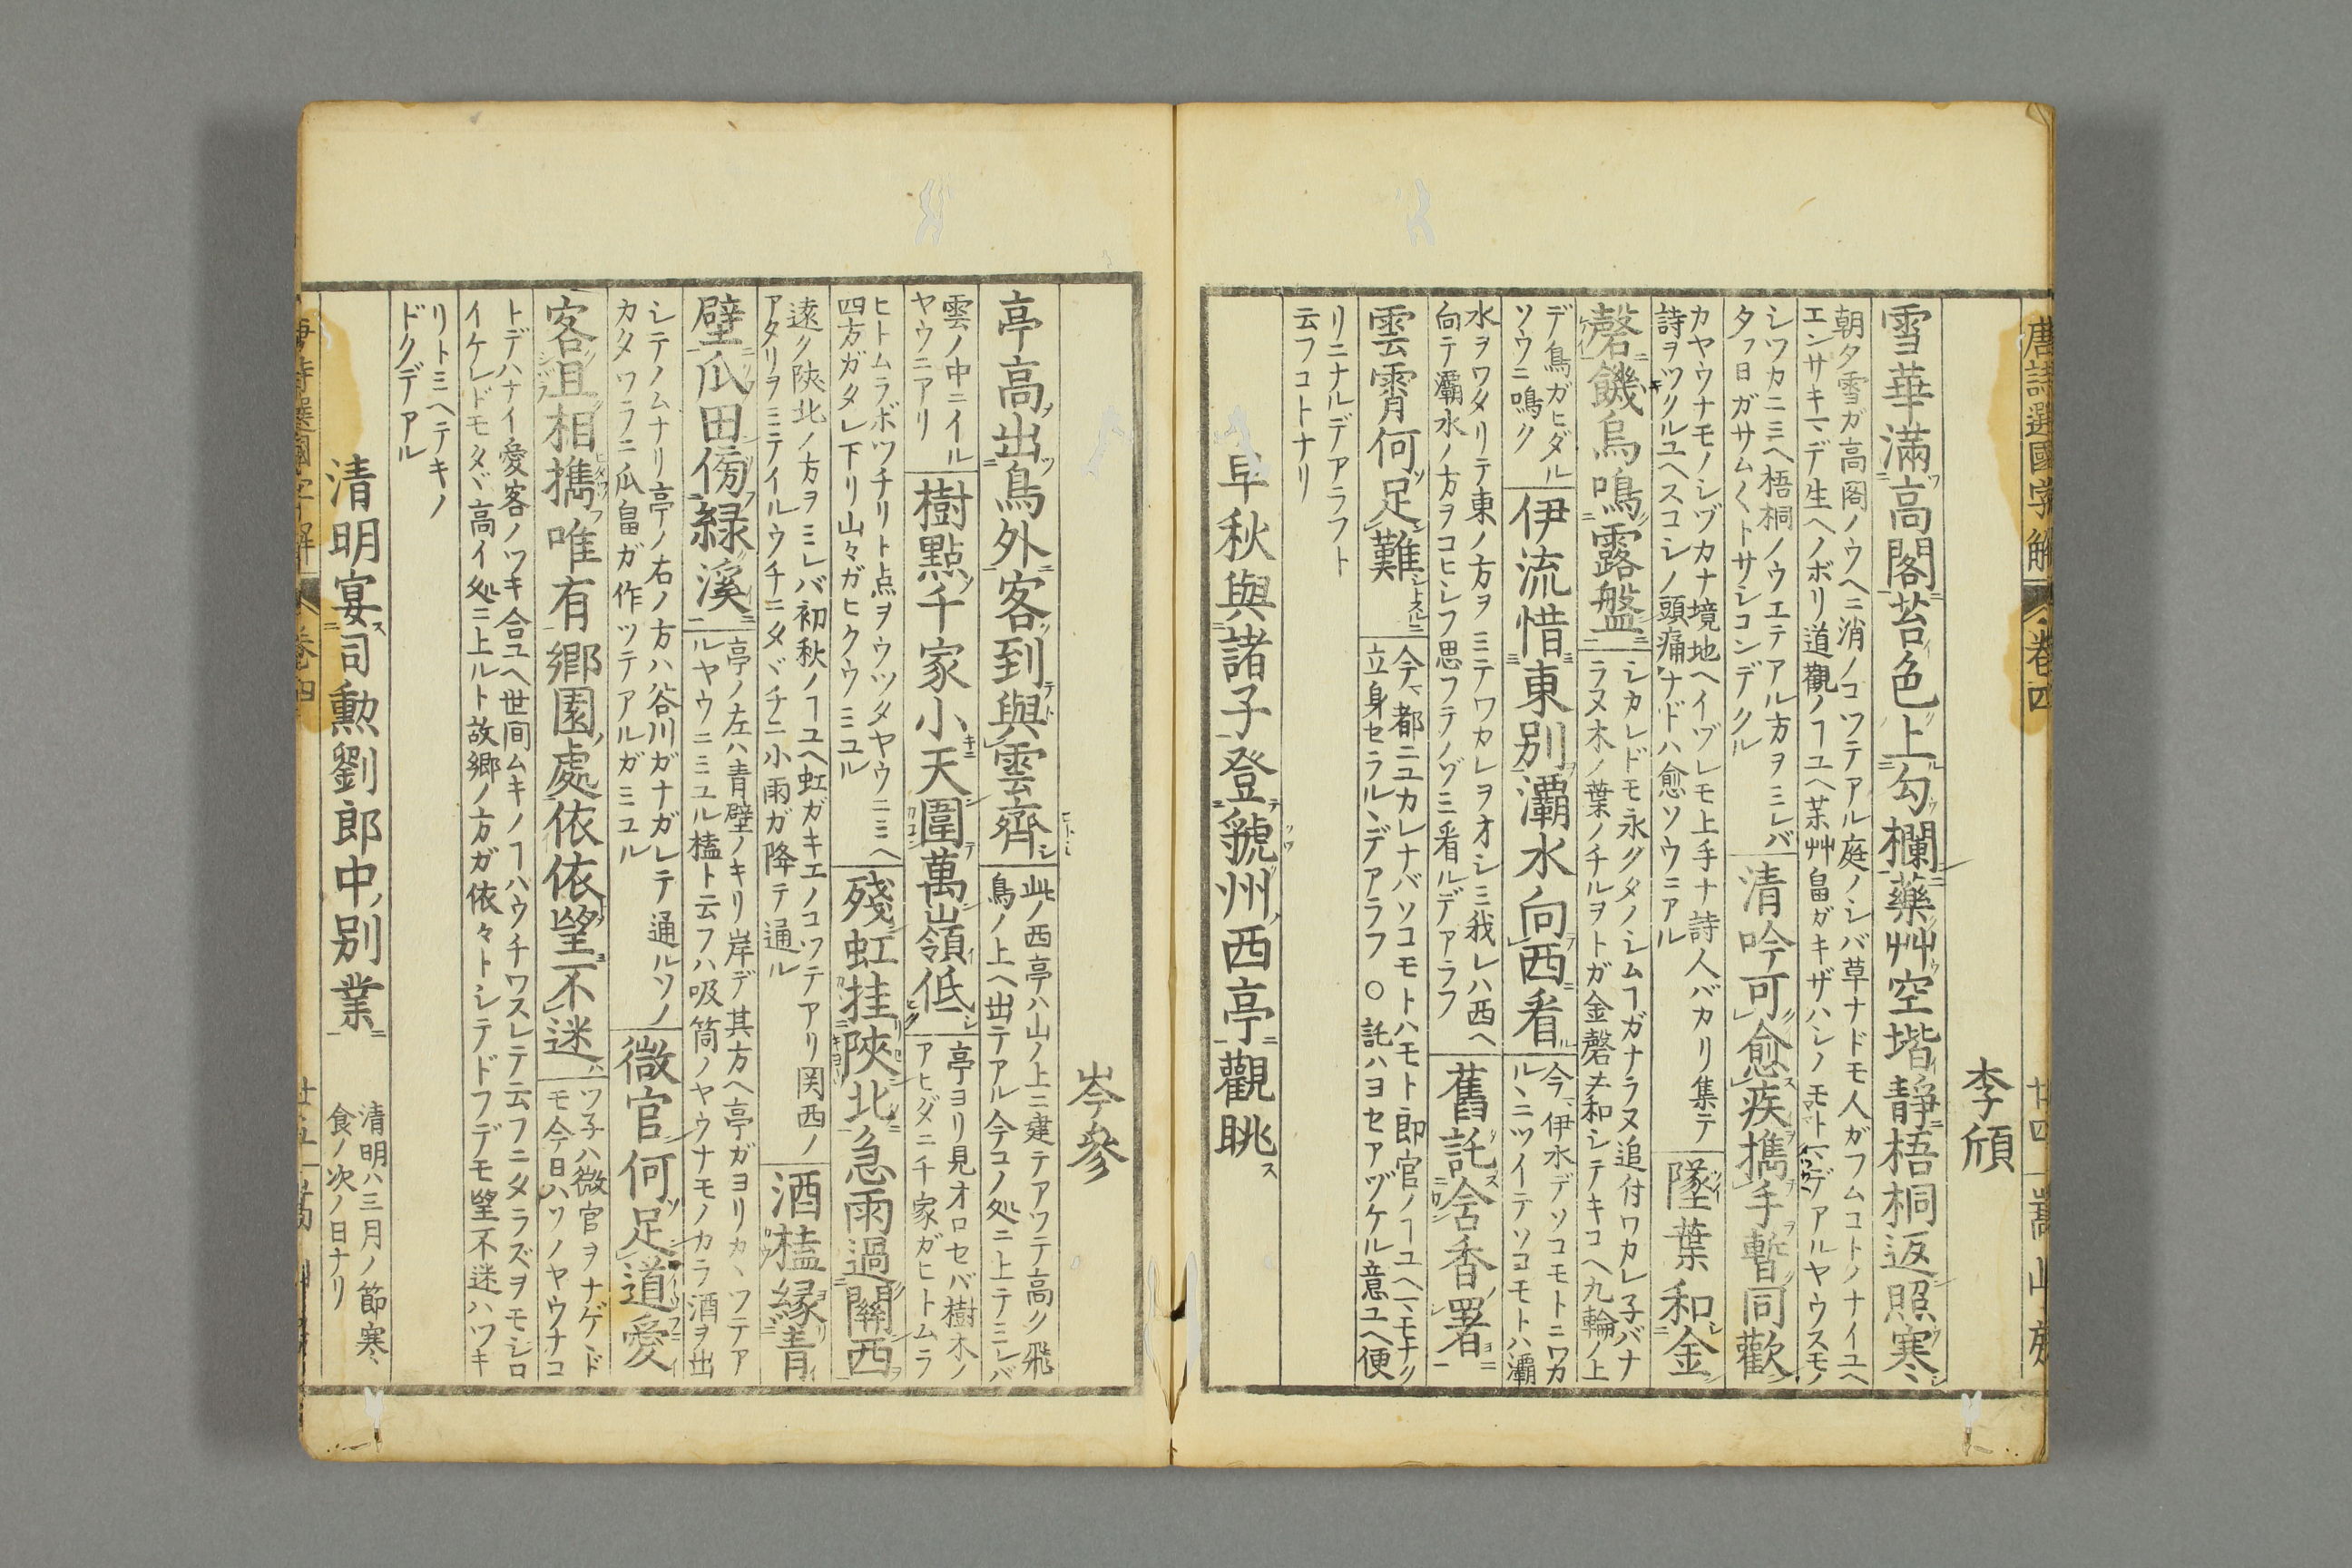 唐詩選國字解 卷四 廿四 嵩山房
李頎
雪華滿高閣苔色上勾欄藥艸空堦靜梧桐返照寒
朝夕雪ガ高閣ノウヘニ消ノコツテアル庭ノシバ草ナドモ人ガフムコトノナイユヘ
エンサキマデ生ヘノボリ道觀ノヿユヘ茉艸畠ガキザハシノモトマデアルヤウスモノ
シツカニミヘ梧桐ノウエテアル方ヲミレバ
タフ日ガサムくトサシコンデクル
清吟可愈疾擕手暫同歡
カヤウナモノシヅカナ境地ヘイヅレモ上手ナ詩人バカリ集テ
詩ヲツクルユヘスコシノ頭痛ナドハ愈ソウニアル
墜葉和金
磬饑烏鳴露盤
シカレドモ永クタノシムヿガナラヌ追付ワカレ子バナ
ラヌ木ノ葉ノチルヲトガ金磬ヲ和シテキコヘ九輪ノ上
デ鳥ガヒダル
ソウニ鳴ク
伊流惜東別灞水向西看
今伊水デソコモトニワカ
ルヽニツイテソコモトハ灞
水ヲワタリテ東ノ方ヲミテワカレヲオシミ我レハ西ヘ
向テ灞水ノ方ヲコヒシフ思フテノゾミ看ルデアラフ
舊託含香署
雲霄何足難
今都ニユカレナバソコモトハモト郎官ノヿユヘマモナク
立身セラルヽデアラフ〇託ハヨセアヅケル意ユヘ便
リニナルデアラフト
云フコトナリ
早秋與諸子登虢州西亭觀眺
岑參
亭高出鳥外客到與雲齊
此ノ西亭ハ山ノ上ニ建テアツテ高ク飛
鳥ノ上ヘ出テアル今コノ処ニ上テミレバ
雲ノ中ニイル
ヤウニアリ
樹點千家小天圍萬嶺低
亭ヨリ見オロセバ樹木ノ
アヒダニ千家ガヒトムラ
ヒトムラボツチリト点ヲウツタヤウニミヘ
四方ガタレ下リ山々ガヒクウミユル
殘虹挂陝北急雨過關西
遠ク陝北ノ方ヲミレバ初秋ノヿユヘ虹ガキエノコツテアリ関西ノ
アタリヲミテイルウチニタヾチニ小雨ガ降テ通ル
酒榼緑青
壁瓜田傍緑溪
亭ノ左ハ青壁ノキリ岸デ其方ヘ亭ガヨリカヽツテア
ルヤウニミユル榼ト云フハ吸筒ノヤウナモノカラ酒ヲ出
シテノムナリ亭ノ右ノ方ハ谷川ガナガレテ通ルソノ
カタワラニ瓜畠ガ作ツテアルガミユル
微官何足道愛
客且相擕唯有鄉園處依依望不迷
ツ子ハ微官ヲナゲヽド
モ今日ハソノヤウナコ
トデハナイ愛客ノツキ合ユヘ世間ムキノヿハウチワスレテ云フニタラズヲモシロ
イケレドモタヾ高イ処ニ上ルト故郷ノ方ガ依々トシテドフデモ望不迷ハツキ
リトミヘテキノ
ドクデアル
清明宴司勲劉郎中別業
清明ハ三月ノ節寒
食ノ次ノ日ナリ
唐詩選國字解 卷四